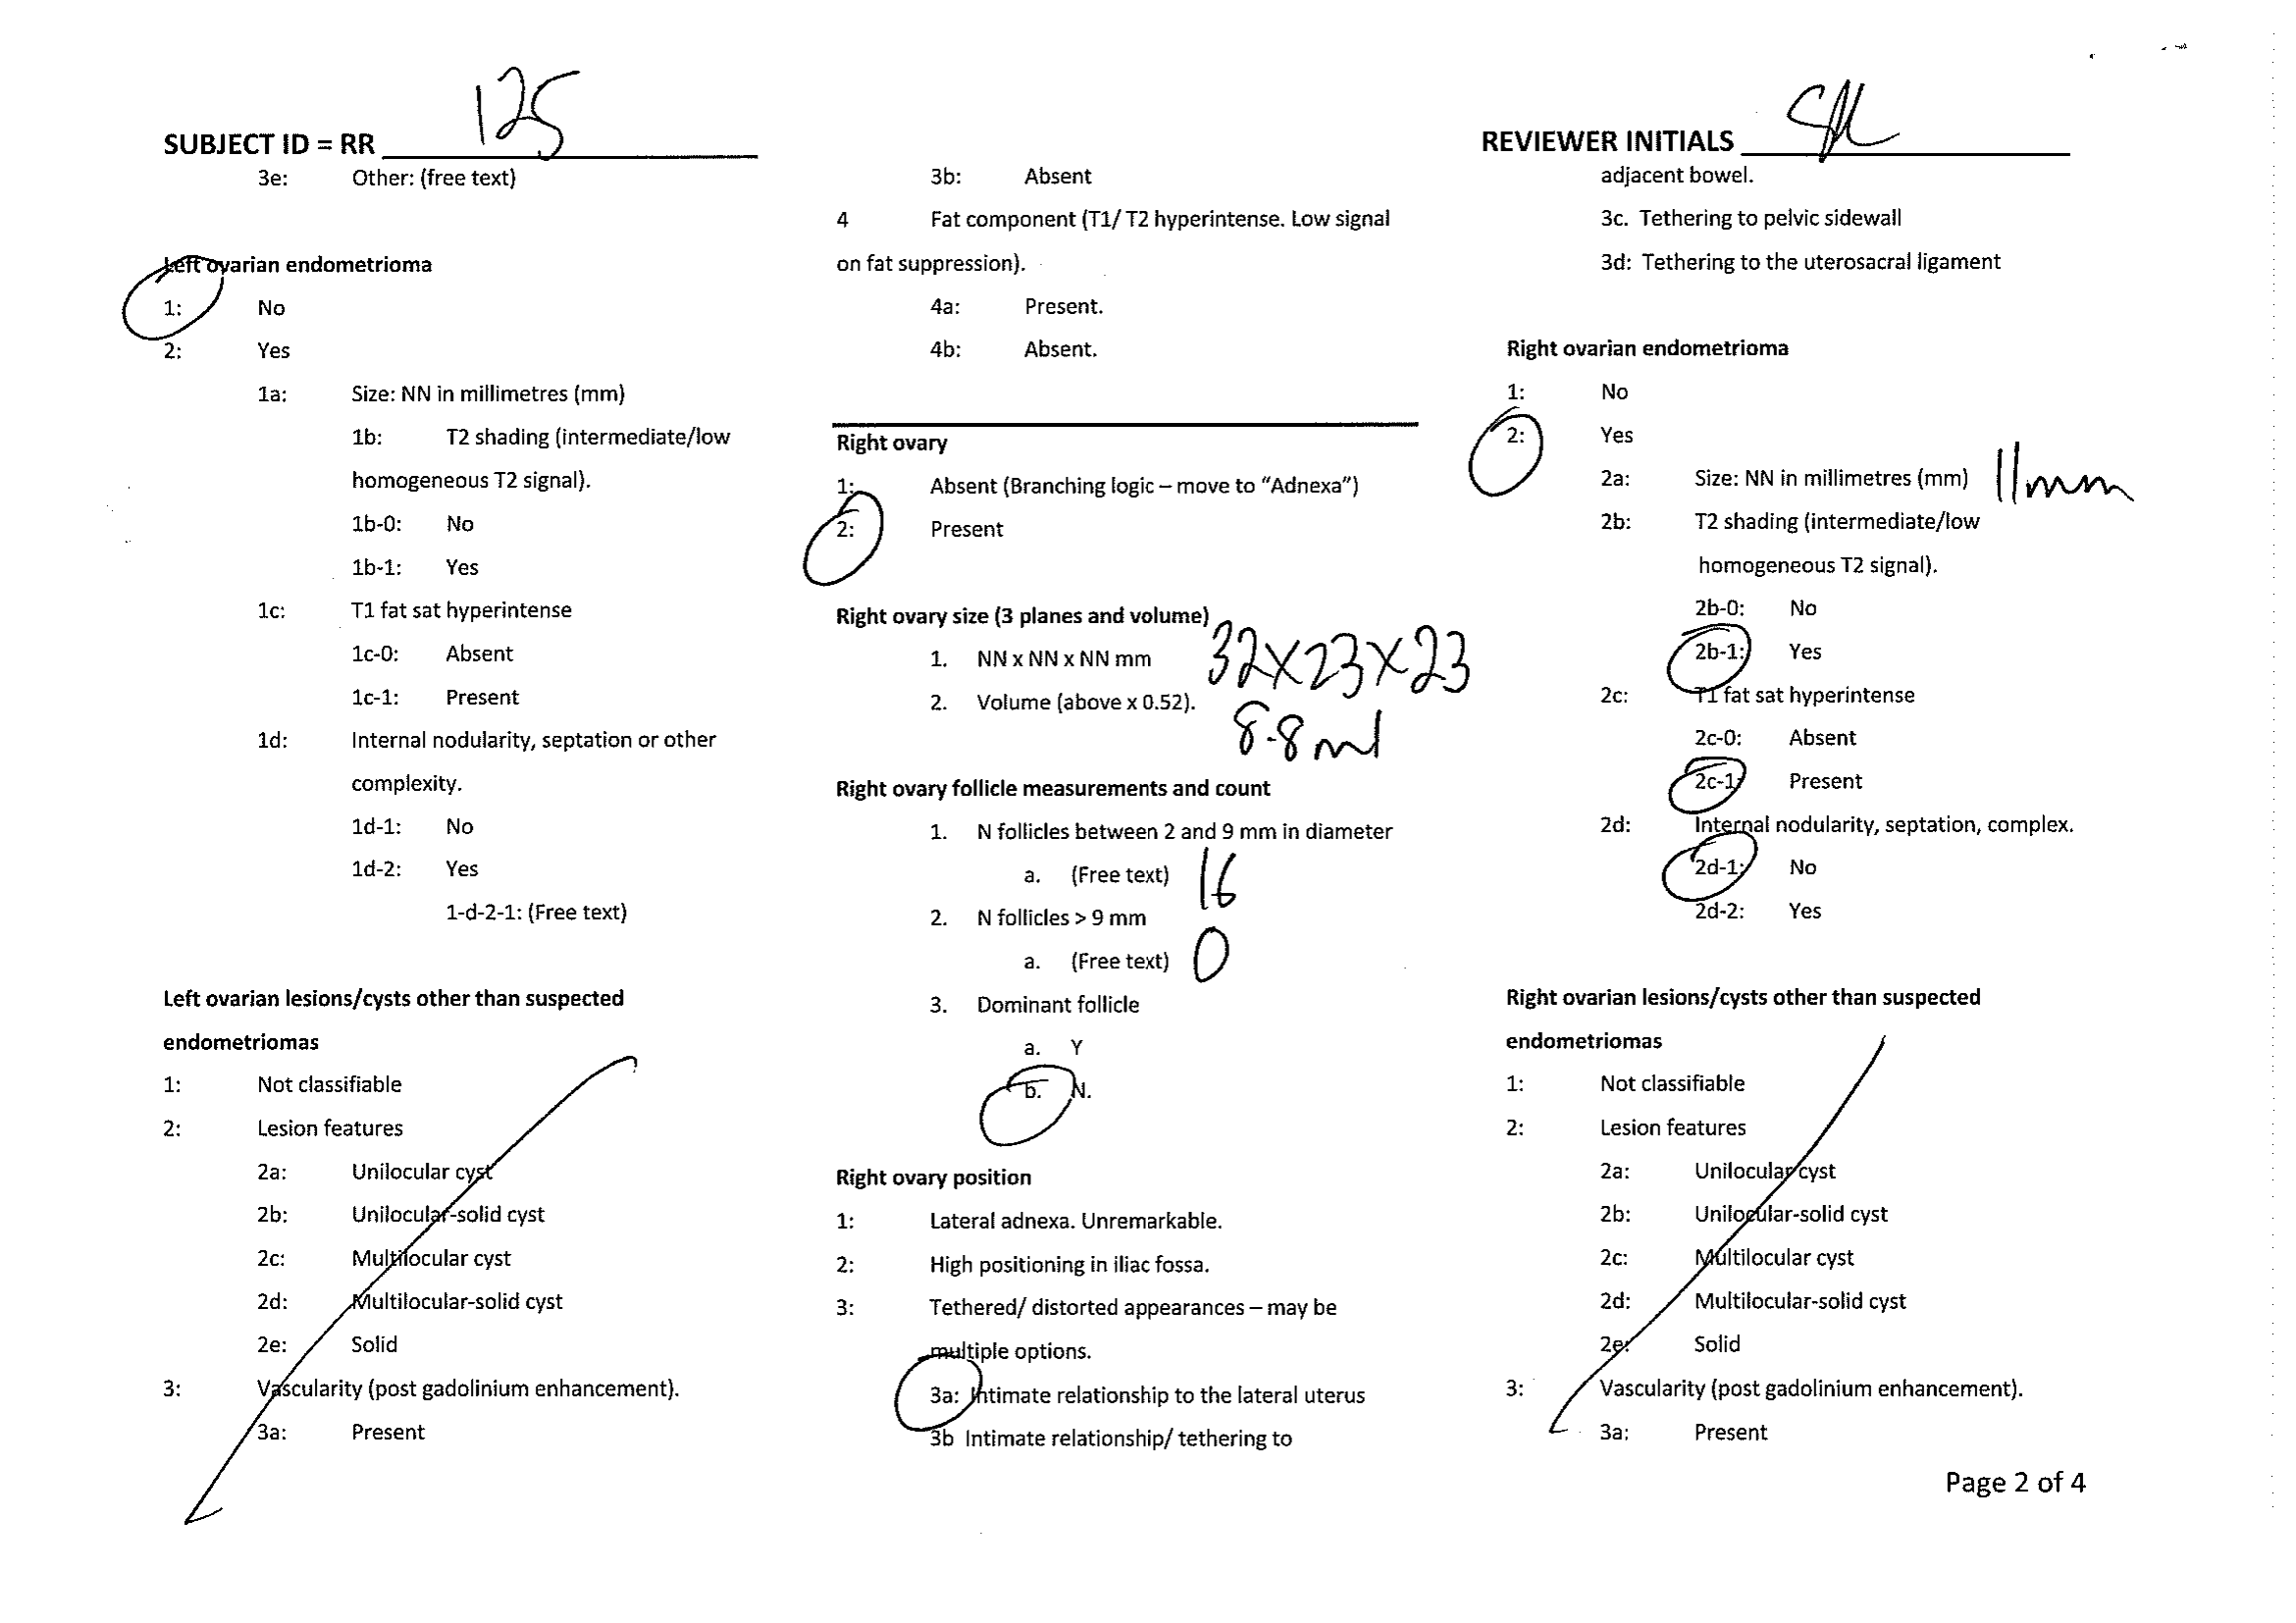 SUBJECT ID = RR 125
3e: Other: (free text)
Left ovarian endometrioma
1: No
2: Yes
1a: Size: NN in millimetres (mm)
1b: T2 shading (intermediate/low
homogeneous T2 signal).
1b-0: No
1b-1: Yes
1c: T1 fat sat hyperintense
1c-0: Absent
1c-1: Present
1d: Internal nodularity, septation or other
complexity.
1d-1: No
1d-2: Yes
1-d-2-1: (Free text)
Left ovarian lesions/cysts other than suspected
endometriomas
1: Not classifiable
2: Lesion features
2a: Unilocular cyst
2b: Unilocular-solid cyst
2c: Multilocular cyst
2d: Multilocular-solid cyst
2e: Solid
3: Vascularity (post gadolinium enhancement).
3a: Present
3b: Absent
4 Fat component (T1/ T2 hyperintense. Low signal
on fat suppression).
4a: Present.
4b: Absent.
Right ovary
1: Absent (Branching logic – move to “Adnexa”)
2: Present
Right ovary size (3 planes and volume)
1. NN x NN x NN mm 32x23x23
2. Volume (above x 0.52). 8.8 ml
Right ovary follicle measurements and count
1. N follicles between 2 and 9 mm in diameter
a. (Free text) 16
2. N follicles > 9 mm
a. (Free text) 0
3. Dominant follicle
a. Y
b. N.
Right ovary position
1: Lateral adnexa. Unremarkable.
2: High positioning in iliac fossa.
3: Tethered/ distorted appearances – may be
multiple options.
3a: Intimate relationship to the lateral uterus
3b Intimate relationship/ tethering to
REVIEWER INITIALS
adjacent bowel.
3c. Tethering to pelvic sidewall
3d: Tethering to the uterosacral ligament
Right ovarian endometrioma
1: No
2: Yes
2a: Size: NN in millimetres (mm) 11mm
2b: T2 shading (intermediate/low
homogeneous T2 signal).
2b-0: No
2b-1: Yes
2c: T1 fat sat hyperintense
2c-0: Absent
2c-1: Present
2d: Internal nodularity, septation, complex.
2d-1: No
2d-2: Yes
Right ovarian lesions/cysts other than suspected
endometriomas
1: Not classifiable
2: Lesion features
2a: Unilocular cyst
2b: Unilocular-solid cyst
2c: Multilocular cyst
2d: Multilocular-solid cyst
2e: Solid
3: Vascularity (post gadolinium enhancement).
3a: Present
Page 2 of 4